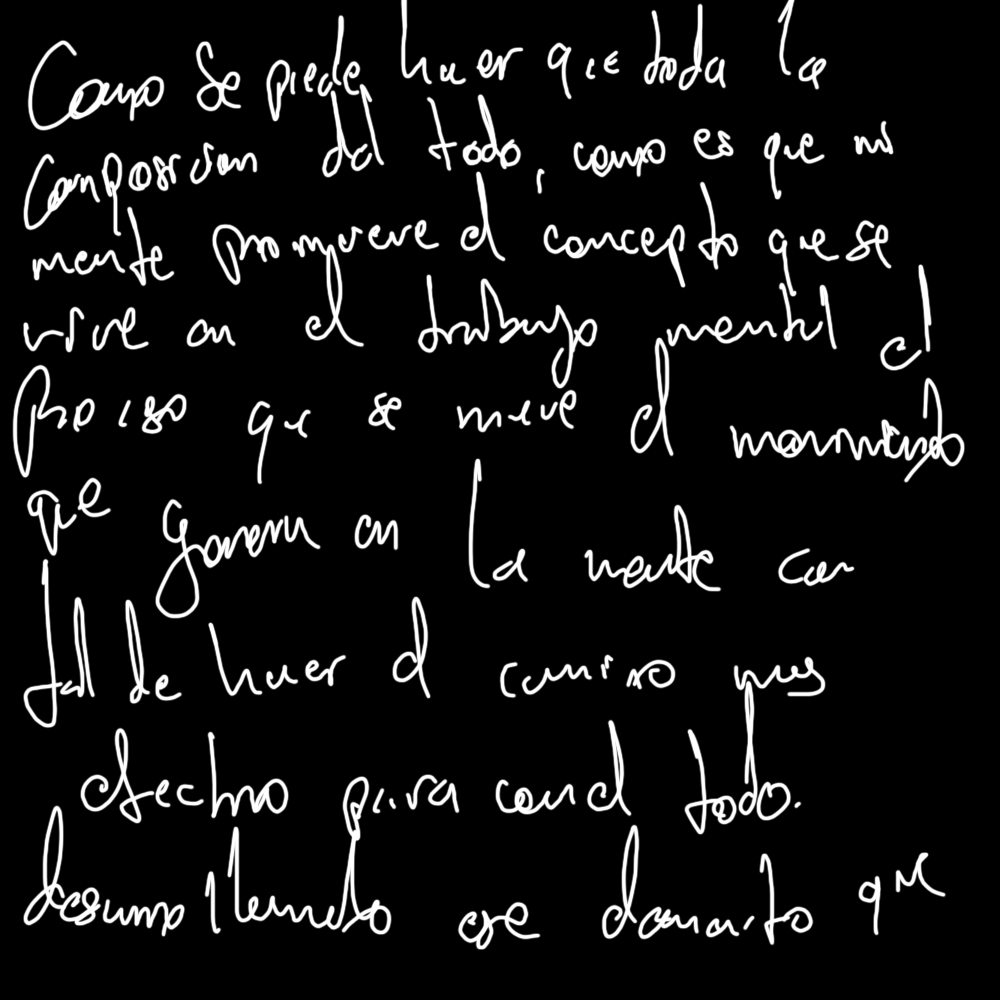 Como se puede hacer que toda la
composicion del todo, como es que mi
mente promueve el concepto que se
vive en el trabajo mental el
proceso que se mueve el movimiento
que genera en la mente con
tal de hacer el camino mas
efectivo para con el todo.
ese que